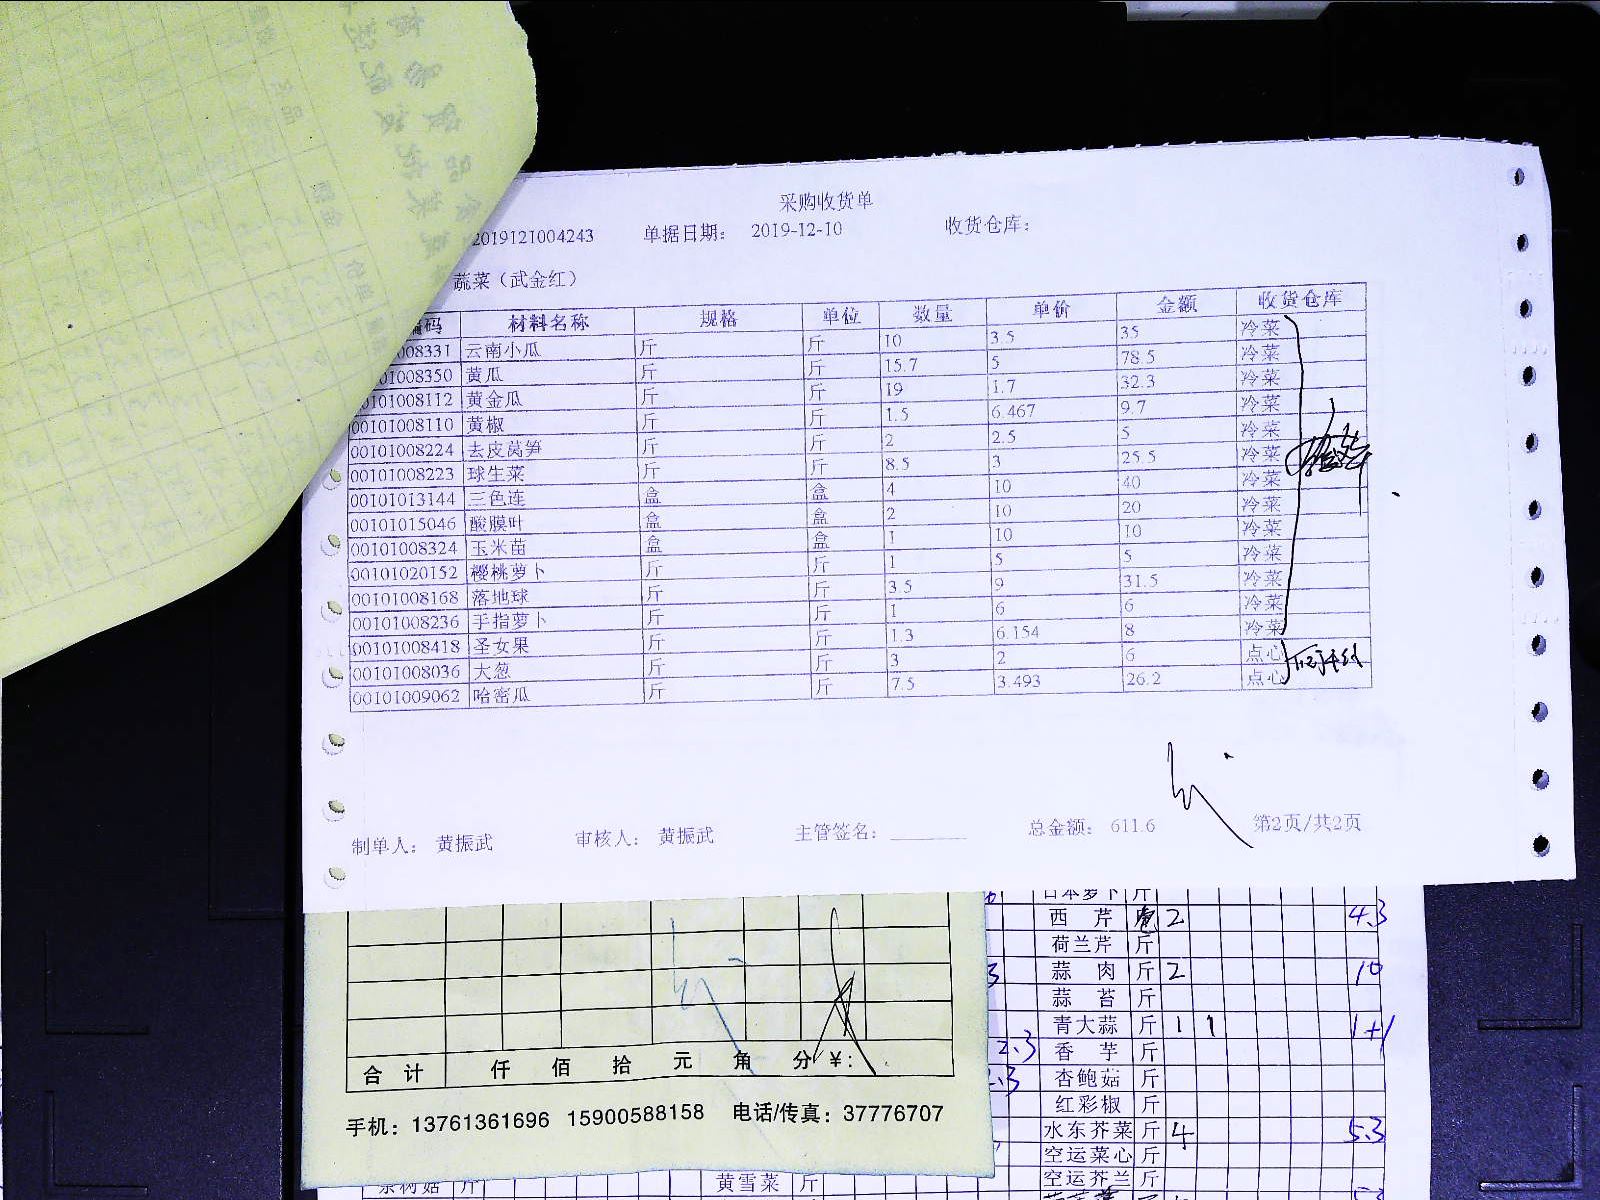 采购收货单
2019121004243 单据日期: 2019-12-10 收货仓库:
蔬菜（武金红）
编码 材料名称 规格 单位 数量 单价 金额 收货仓库
008331 云南小瓜 斤 斤 10 3.5 35 冷菜
01008350 黄瓜 斤 斤 15.7 5 78.5 冷菜
0101008112 黄金瓜 斤 斤 19 1.7 32.3 冷菜
00101008110 黄椒 斤 斤 1.5 6.467 9.7 冷菜
00101008224 去皮莴笋 斤 斤 2 2.5 5 冷菜
00101008223 球生菜 斤 斤 8.5 3 25.5 冷菜
00101013144 三色连 盒 盒 4 10 40 冷菜
00101015046 酸膜叶 盒 盒 2 10 20 冷菜
00101008324 玉米苗 盒 盒 1 10 10 冷菜
00101020152 樱桃萝卜 斤 斤 1 5 5 冷菜
00101008168 落地球 斤 斤 3.5 9 31.5 冷菜
00101008236 手指萝卜 斤 斤 1 6 6 冷菜
00101008418 圣女果 斤 斤 1.3 6.154 8 冷菜
00101008036 大葱 斤 斤 3 2 6 点心
00101009062 哈密瓜 斤 斤 7.5 3.493 26.2 点心
制单人: 黄振武 审核人: 黄振武 主管签名: 总金额: 611.6 第2页/共2页
合计 仟 佰 拾 元 角 分 ¥:
手机: 13761361696 15900588158 电话/传真: 37776707
日本萝卜 斤
西芹 2 4.3
荷兰芹 斤
蒜肉 斤 2 10
蒜苔 斤
青大蒜 斤 1 1 1+1
香芋 斤
杏鲍菇 斤
红彩椒 斤
水东芥菜 斤 4 5.3
空运菜心 斤
空运芥兰 斤
茶树菇 斤 黄雪菜 斤